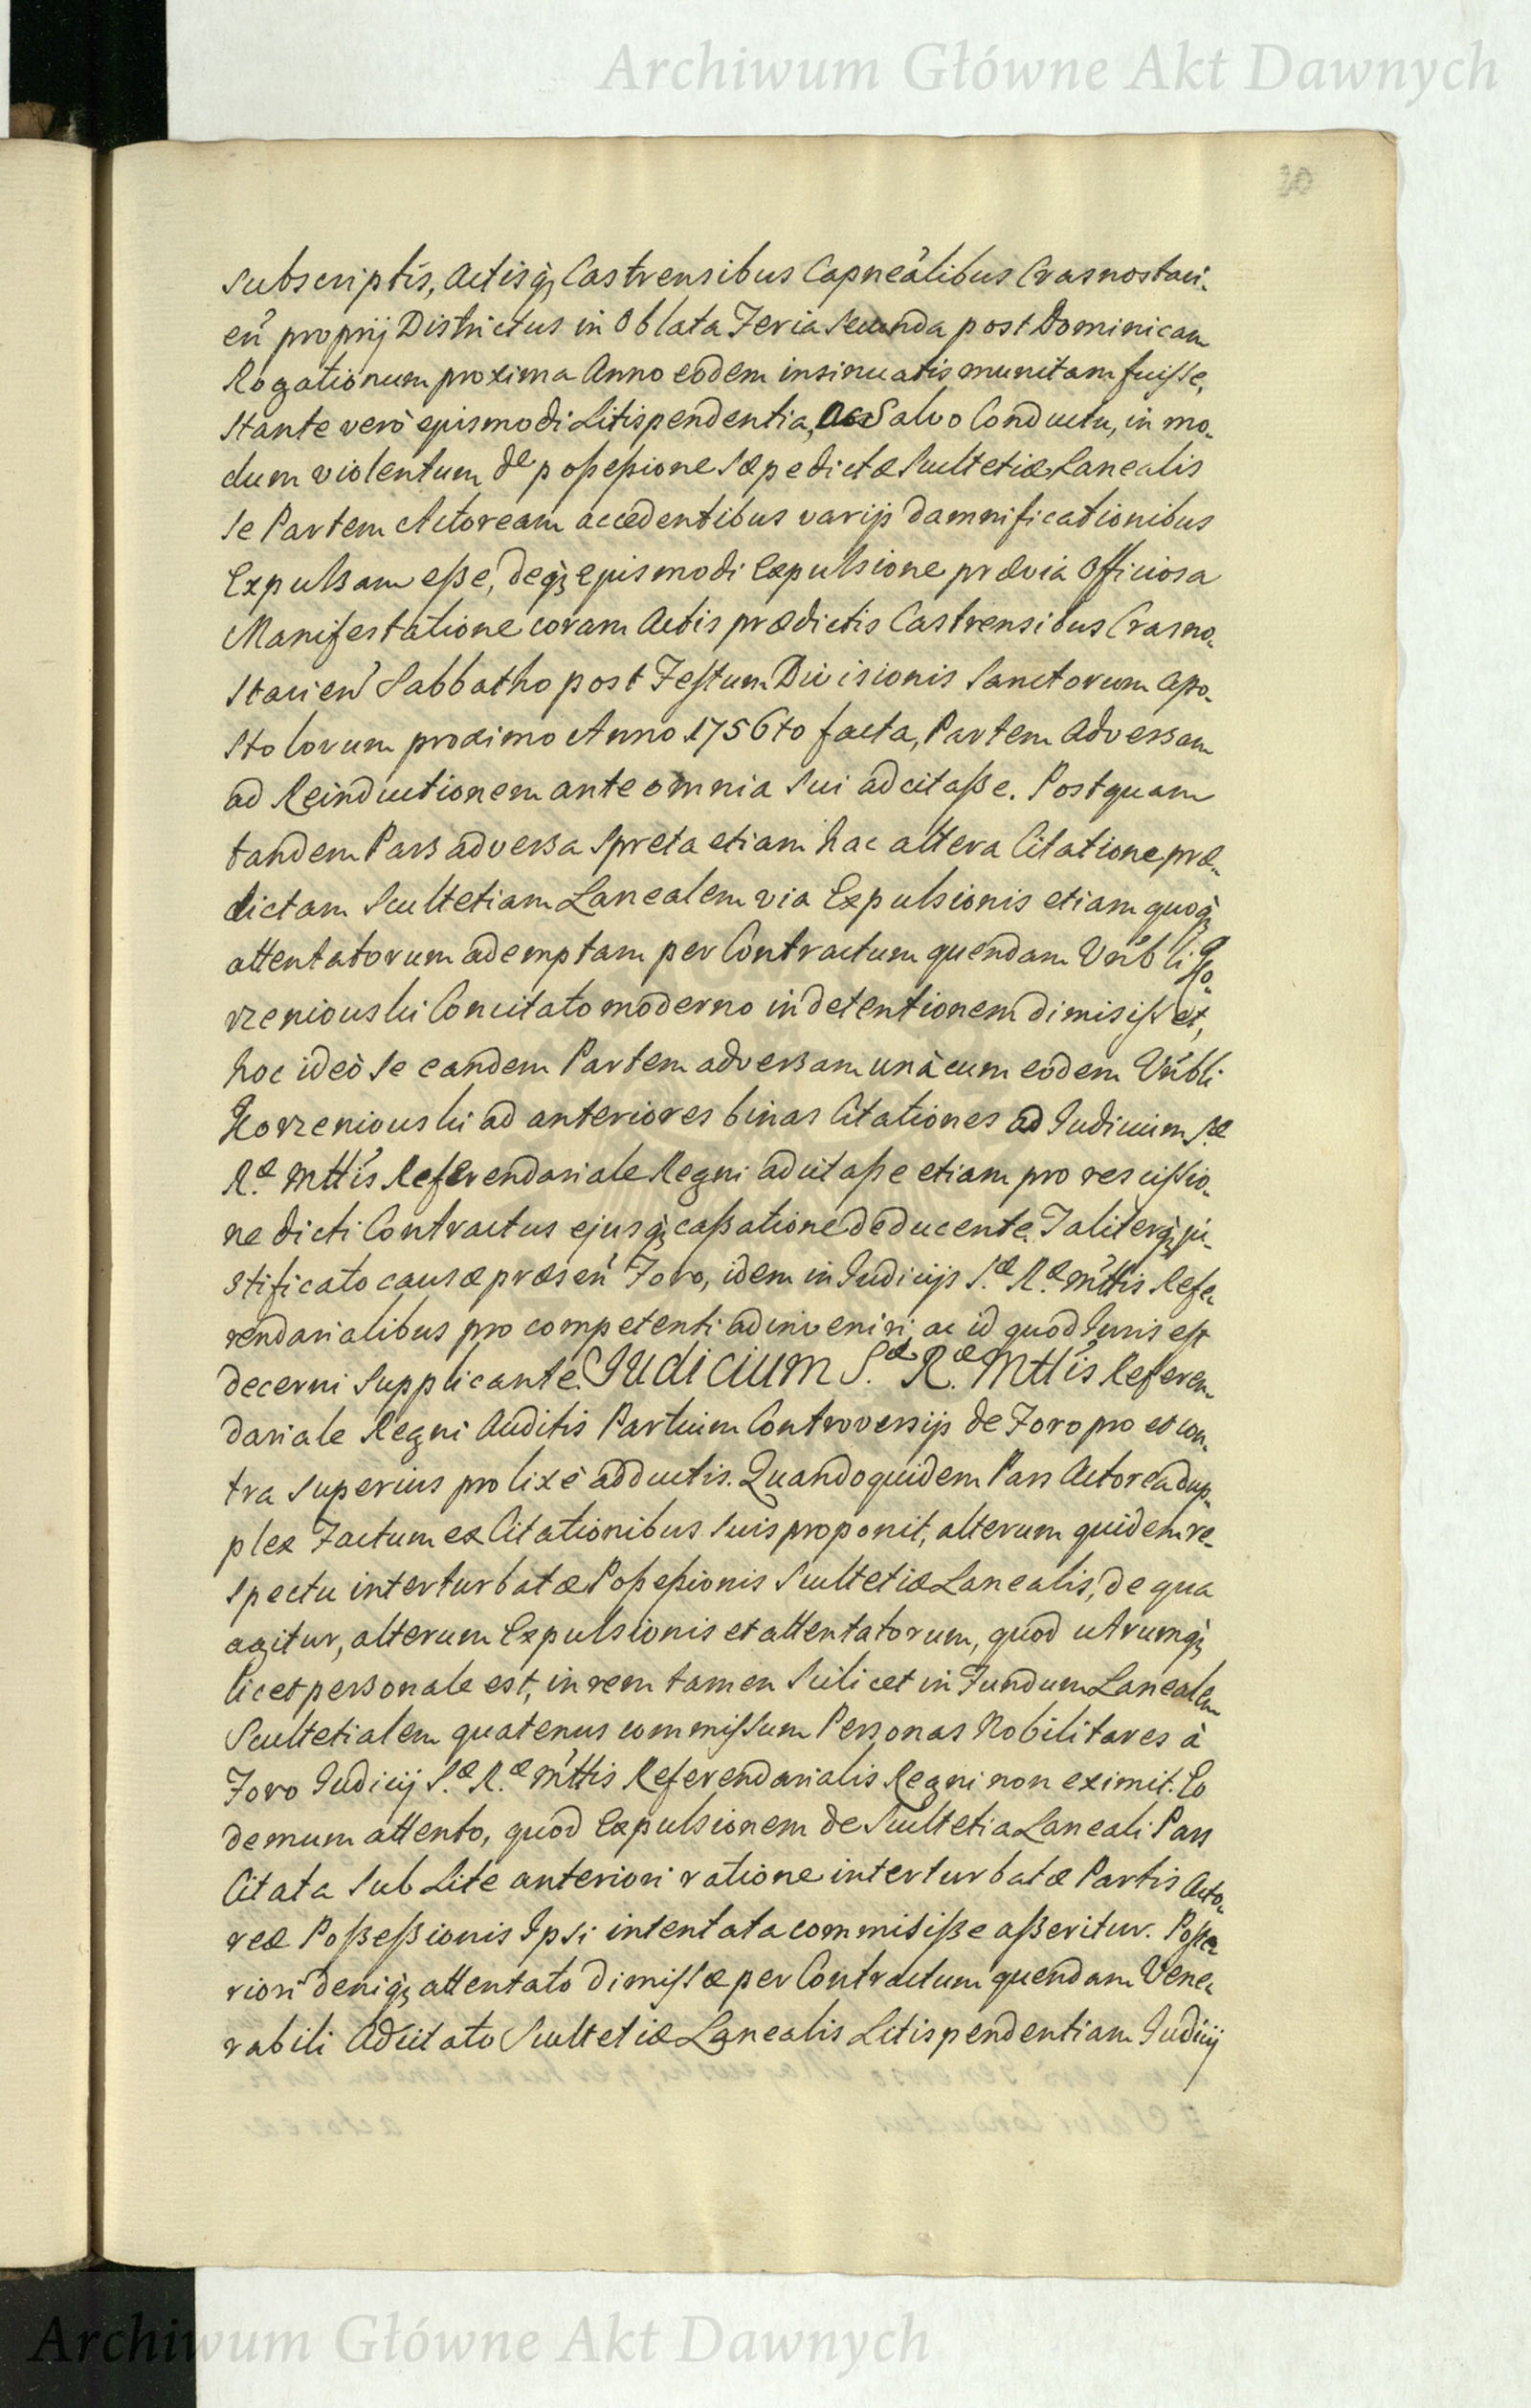 Archiwum Główne Akt Dawnych
30
Subscriptis, Actisq; Castrensibus Capnealibus Crasnostavi-
en̄ proprij Districtus in Oblata Feria Secunda post Dominicam
Rogationum proxima Anno eodem insinuatis munitam fuiſse,
Stante verò ejusmodi Litispendentia, Ac Salvo Conductu, in mo-
dum violentum de poſseſsione Sæpedictæ Scultetiæ Lanealis
Se Partem Actoream accedentibus varijs damnificationibus
Expulsam eſse, deq; ejusmodi Expulsione prævia Officiosa
Manifestatione coram Actis prædictis Castrensibus Crasno-
Stavien̄ Sabbatho post Festum Divisionis Sanctorum Apo-
Stolorum proximo Anno 1756to facta, Partem Adversam
ad Reinductionem ante omnia Sui adcitaſse. Postquam
tandem Pars adversa Spreta etiam hac altera Citatione præ-
dictam Scultetiam Lanealem via Expulsionis etiam quoq;
attentatorum ademptam per Contractum quendam Vn̄bli Ko-
rzeniowski Concitato moderno in detentionem dimisiſset,
hoc ideò Se eandem Partem adversam unà cum eodem Vn̄bli
Korzeniowski ad anteriores binas Citationes ad Iudicium S.æ
R.æ Mttis Referendariale Regni adcitaſse etiam pro resciſsio-
ne dicti Contractus ejusq; caſsatione deducente. Taliterq; ju-
stificato causæ præsen̄ Foro, idem in Iudicijs S.æ R.æ Mttis Refe-
rendarialibus pro competenti adinveniri, ac id quod Iuris est
decerni Supplicante. Iudicium S.æ R.æ Mttis Referen-
dariale Regni Auditis Partium Controversijs de Foro pro et con-
tra Superius prolixè adductis. Quandoquidem Pars Actorea dup-
plex Factum ex Citationibus Suis proponit, alterum quidem re-
Spectu interturbatæ Poſseſsionis Scultetiæ Lanealis, de qua
agitur, alterum Expulsionis et attentatorum, quod utrumq;
licet personale est, in rem tamen Scilicet in Fundum Lanealem
Scultetialem quatenus commiſsum Personas Nobilitares à
Foro Iudicij S.æ R.æ Mttis Referendarialis Regni non eximit. Eo
demum attento, quod Expulsionem de Scultetia Laneali Pars
Citata Sub Lite anteriori ratione interturbatæ Partis Acto-
reæ Poſseſsionis Ipsi intentata commisiſse aſseritur. Poste-
riori deniq; attentato dimiſsæ per Contractum quendam Vene-
rabili Adcitato Scultetiæ Lanealis Litispendentiam Iudicij
Archiwum Główne Akt Dawnych